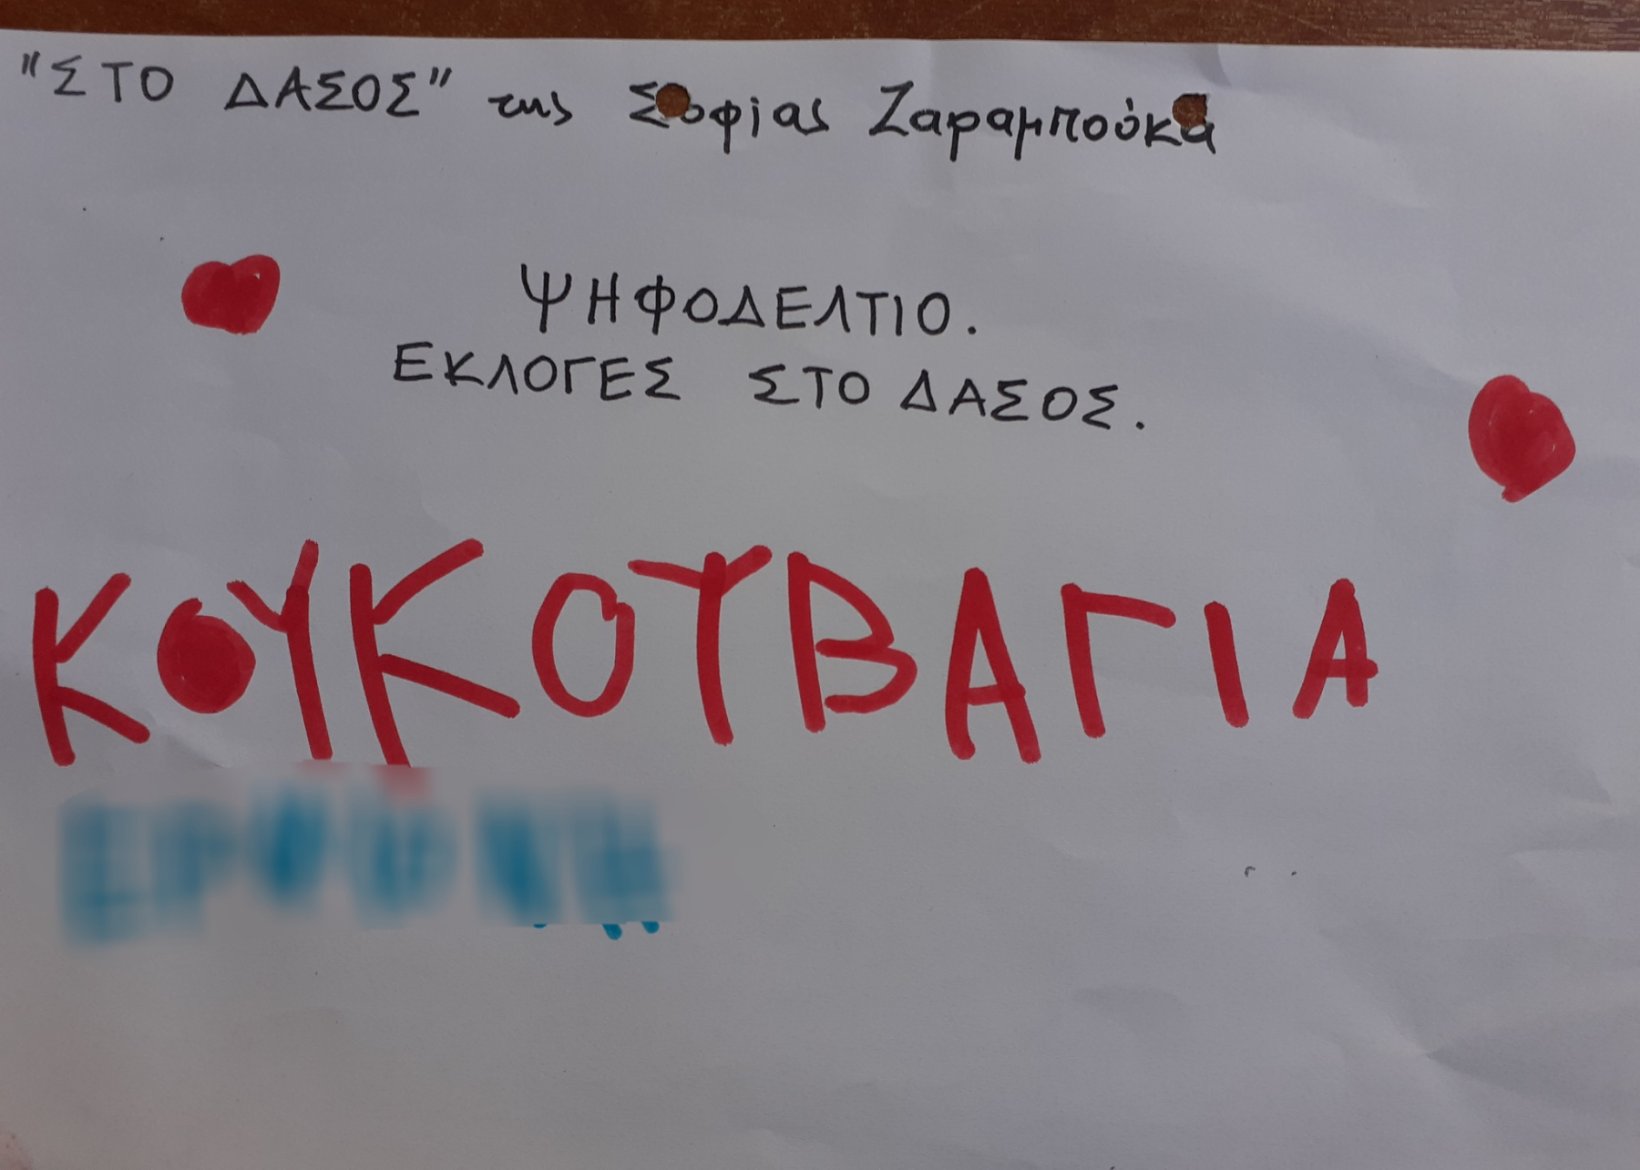 "ΣΤΟ ΔΑΣΟΣ" της Σοφίας Ζαραμπούκα
ΨΗΦΟΔΕΛΤΙΟ.
ΕΚΛΟΓΕΣ ΣΤΟ ΔΑΣΟΣ.
ΚΟΥΚΟΥΒΑΓΙΑ